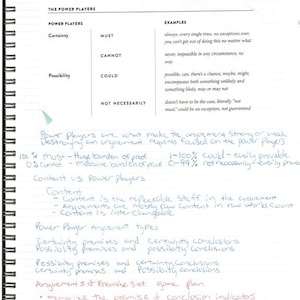 THE POWER PLAYERS
POWER PLAYERS EXAMPLES
Certainty MUST always, every single time, no exceptions ever, you can't get out of doing this no matter what
CANNOT never, impossible in any circumstance, no way
Possibility COULD possible, can, there's a chance, maybe, might; encompasses both something unlikely and something likely, may or may not
NOT NECESSARILY doesn't have to be the case, literally "not must," could be an exception, not guaranteed
Power players are what make the argument strong or weak
Destroying an argument requires focused on the power players
100% Must - Huge burden of proof 1-100% Could - easily provable
0% Cannot - massive burden of proof 0-99% not necessarily easily proven
Content vs Power players
Content
- Content is the replaceable stuff in the argument
- Arguments are mostly raw content in real world
- Content is interchangeable
Power Player argument types
Certainty premises and certainty conclusions
Possibility premises and possibility conclusions
Possibility premises and certainty conclusions
Certainty premises and Possibility conclusions
Arguments & Premise Set game plan
• memorize the premise & conclusion indicators